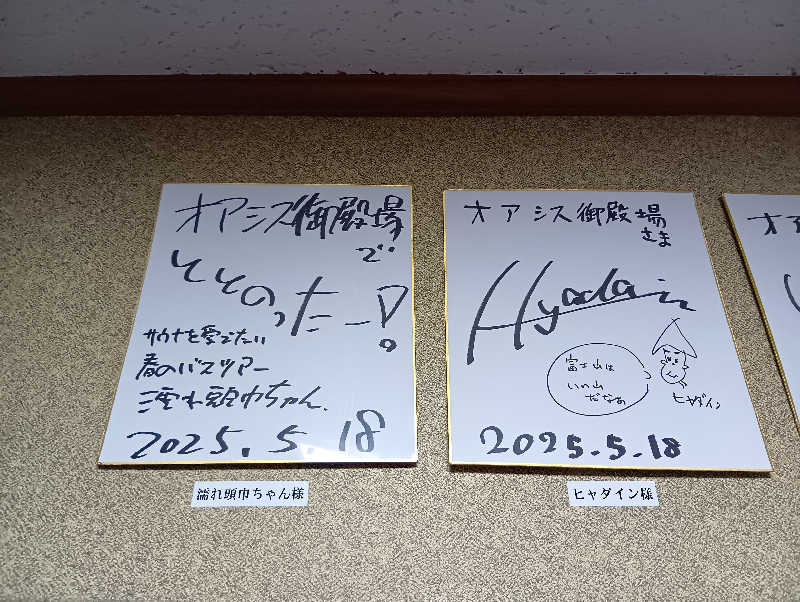 オアシス御殿場
で
ととのったー!
サウナを愛でたい
春のバスツアー
濡れ頭巾ちゃん.
2025.5.18
濡れ頭巾ちゃん様
オアシス御殿場
さま
Hyadain
富士山は
いい山
だなぁ
ヒャダイン
2025.5.18
ヒャダイン様
オア